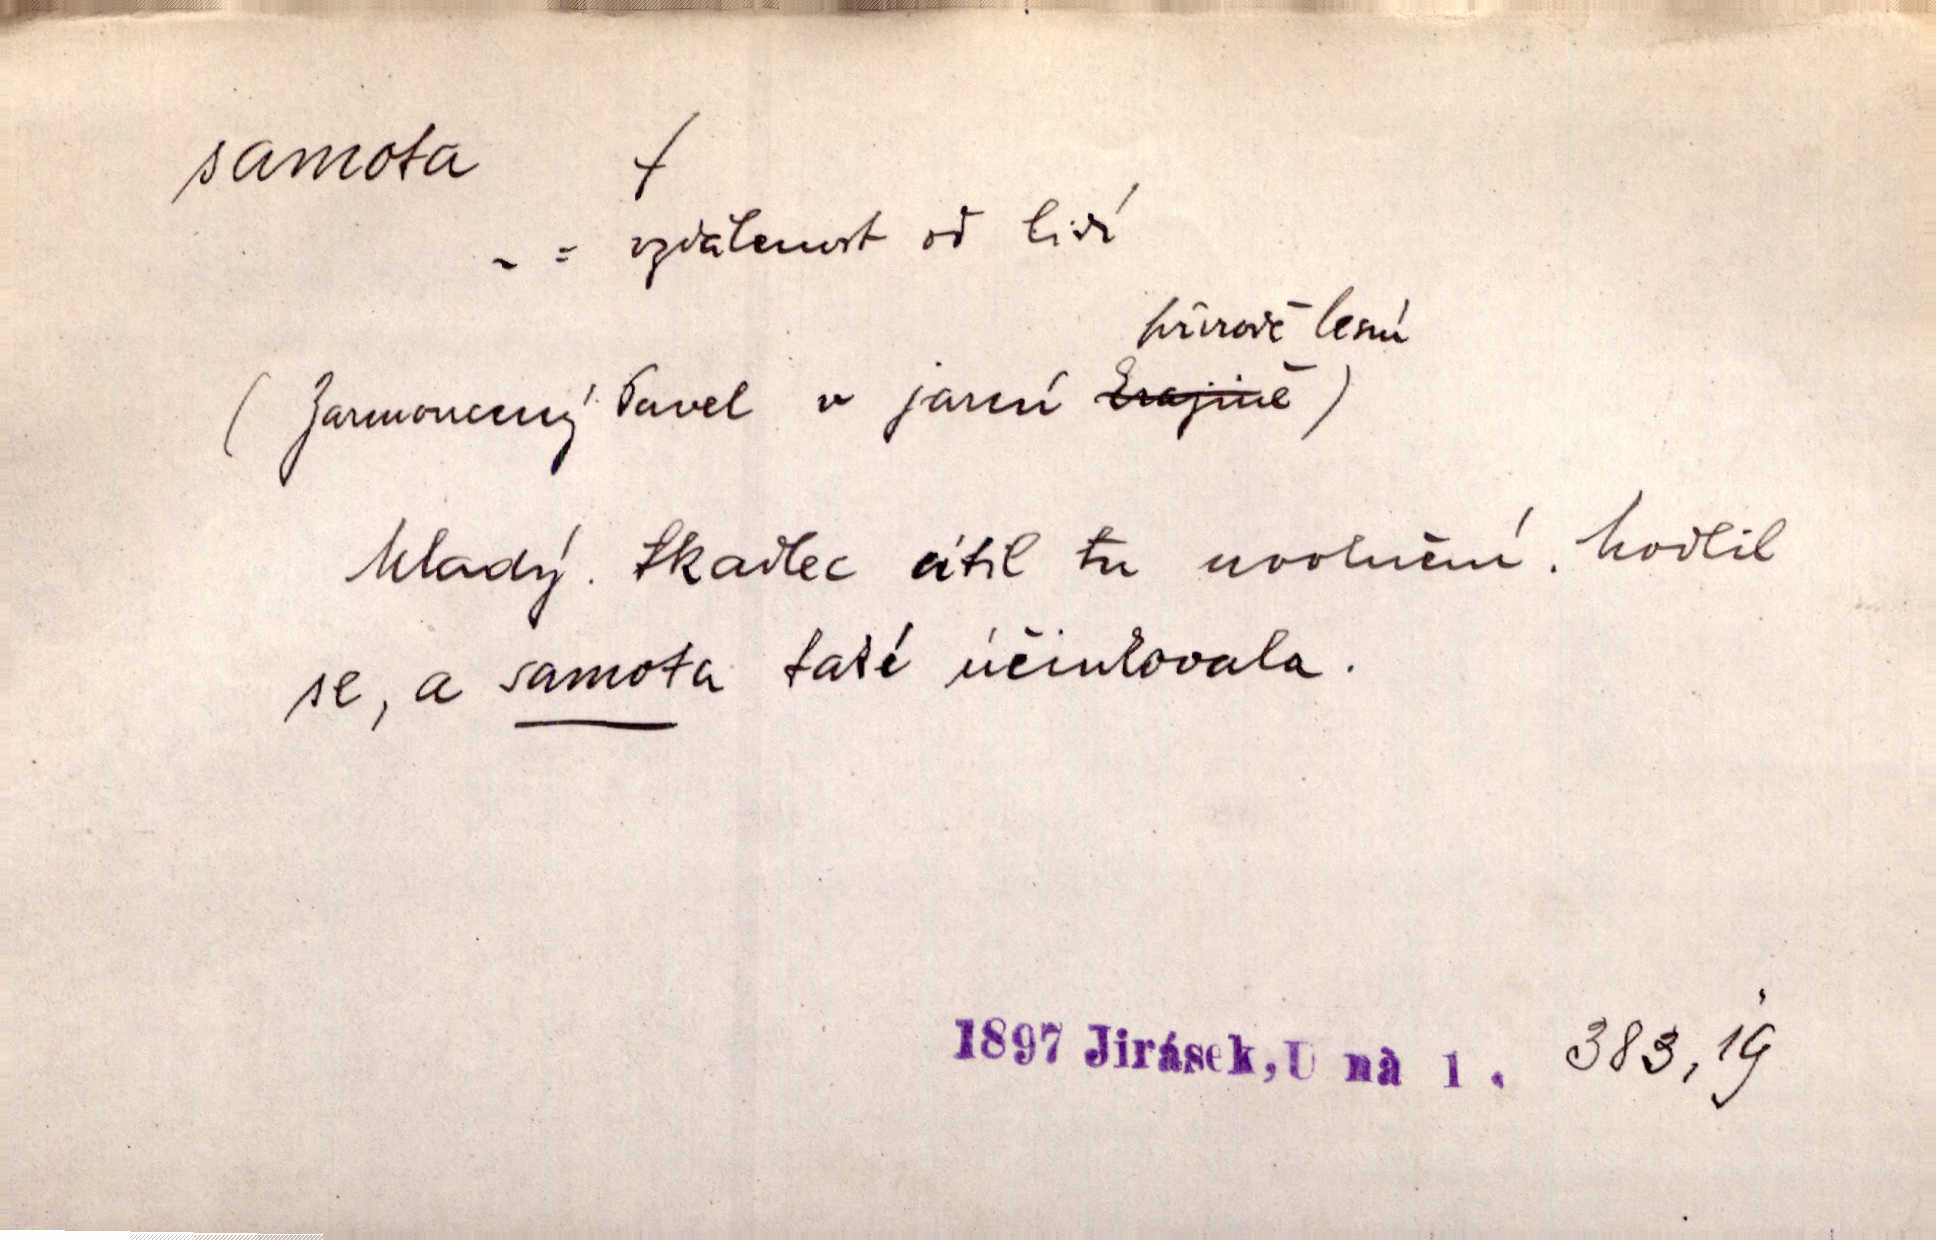 samota f
~ = vzdálenost od lidí
přírodě lesní
( Zarmoucený Pavel v jarní krajině )
Mladý tkadlec cítil tu uvolnění. Modlil
se, a samota také účinkovala.
1897 Jirásek, U nà 1. 383, 19